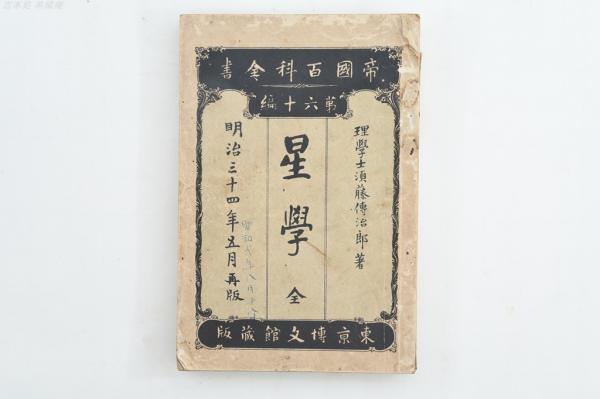 帝國百科全書
第六十編
理學士須藤傳治郎著
星學 全
明治三十四年五月再版
東京博文館蔵版